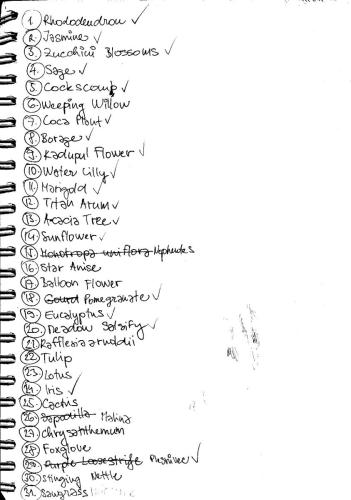 1. Rhododendron ✓
2. Jasmine ✓
3. Zucchini Blossoms ✓
4. Sage ✓
5. Cockscomb ✓
6. Weeping Willow
7. Coca Plant ✓
8. Borage ✓
9. Kadupul Flower ✓
10. Water Lilly ✓
11. Marigold ✓
12. Titan Arum ✓
13. Acacia Tree ✓
14. Sunflower ✓
15. Monotropa uniflora Nephentes
16. Star Anise
17. Balloon Flower
18. Gourd Pomegranate ✓
19. Eucalyptus ✓
20. Meadow Salsify ✓
21. Rafflesia arnoldii
22. Tulip
23. Lotus
24. Iris ✓
25. Cactus
26. Sapodilla Malina
27. Chrysanthemum
28. Foxglove
29. Purple Loosestrife ✓
30. Stinging Nettle
31. Sawgrass